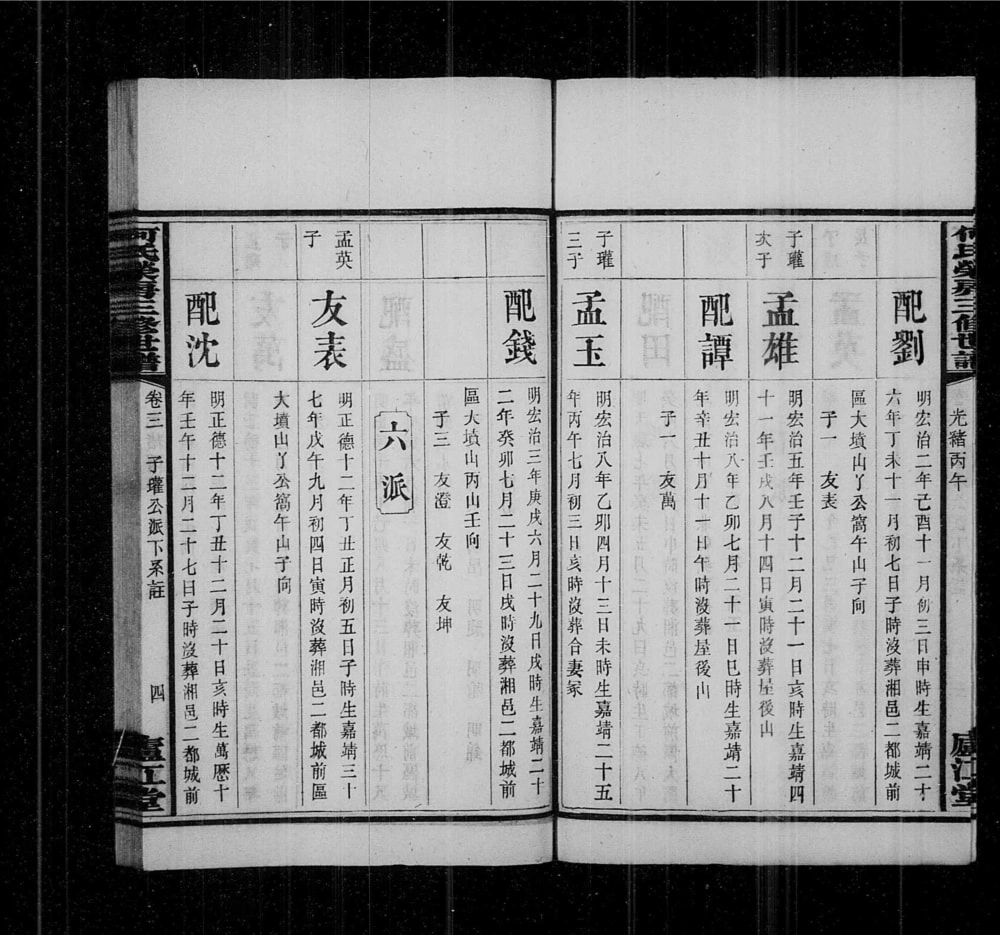 何氏榮房三修世譜
光緒丙午
廬江堂
配劉
明宏治二年己酉十一月初三日申時生嘉靖二十
六年丁未十一月初七日子時沒葬湘邑二都城前
區大墳山丫公窩午山子向
子一　友表
子瓘
次子
孟雄
明宏治五年壬子十二月二十一日亥時生嘉靖四
十一年壬戌八月十四日寅時沒葬屋後山
配譚
明宏治八年乙卯七月二十一日巳時生嘉靖二十
年辛丑十月十一日午時沒葬屋後山
子一　友萬
子瓘
三子
孟玉
明宏治八年乙卯四月十三日未時生嘉靖二十五
年丙午七月初三日亥時沒葬合妻冢
配錢
明宏治三年庚戌六月二十九日戌時生嘉靖二十
二年癸卯七月二十三日戌時沒葬湘邑二都城前
區大墳山丙山壬向
子三　友澄　友乾　友坤
六派
孟英
子
友表
明正德十二年丁丑正月初五日子時生嘉靖三十
七年戊午九月初四日寅時沒葬湘邑二都城前區
大墳山丫公窩午山子向
配沈
明正德十二年丁丑十二月二十日亥時生萬歷十
年壬午十二月二十七日子時沒葬湘邑二都城前
何氏榮房三修世譜
卷三　子瓘公派下系註　四
廬江堂